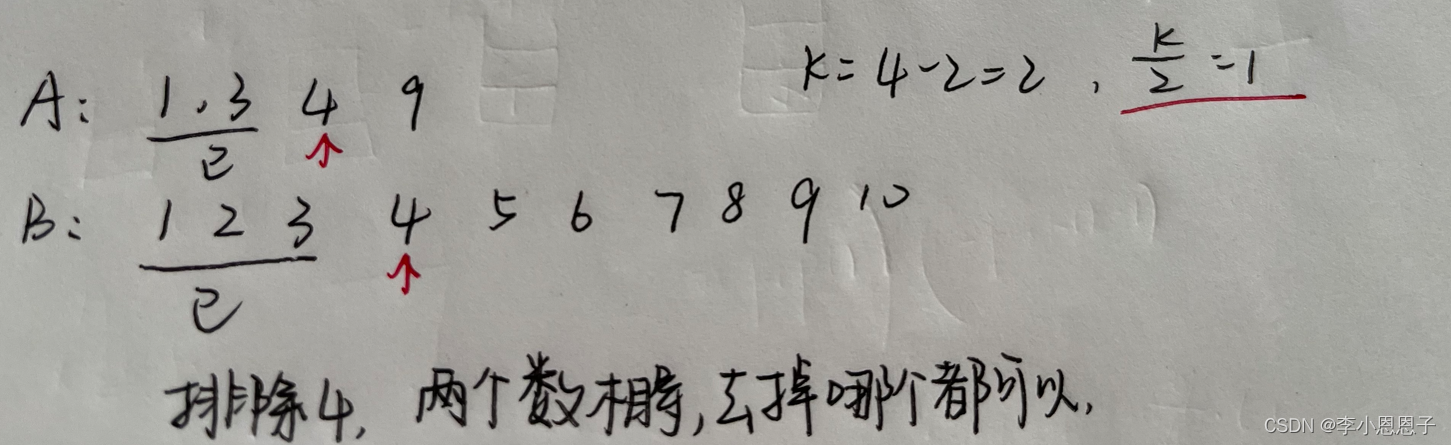 K=4-2=2, K/2=1
A: 1.3 4 9
已
↑
B: 1 2 3 4 5 6 7 8 9 10
↑
已
排除4, 两个数相等,去掉哪个都可以,
CSDN @李小恩恩子